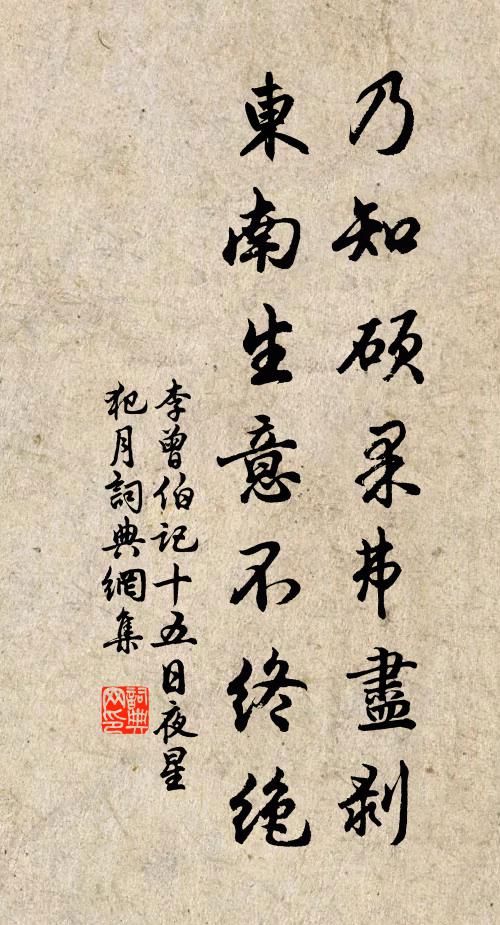 乃知硕果弗盡剥
東南生意不终绝
李曾伯记十五日夜星
犯月詞典網集
詞典网印